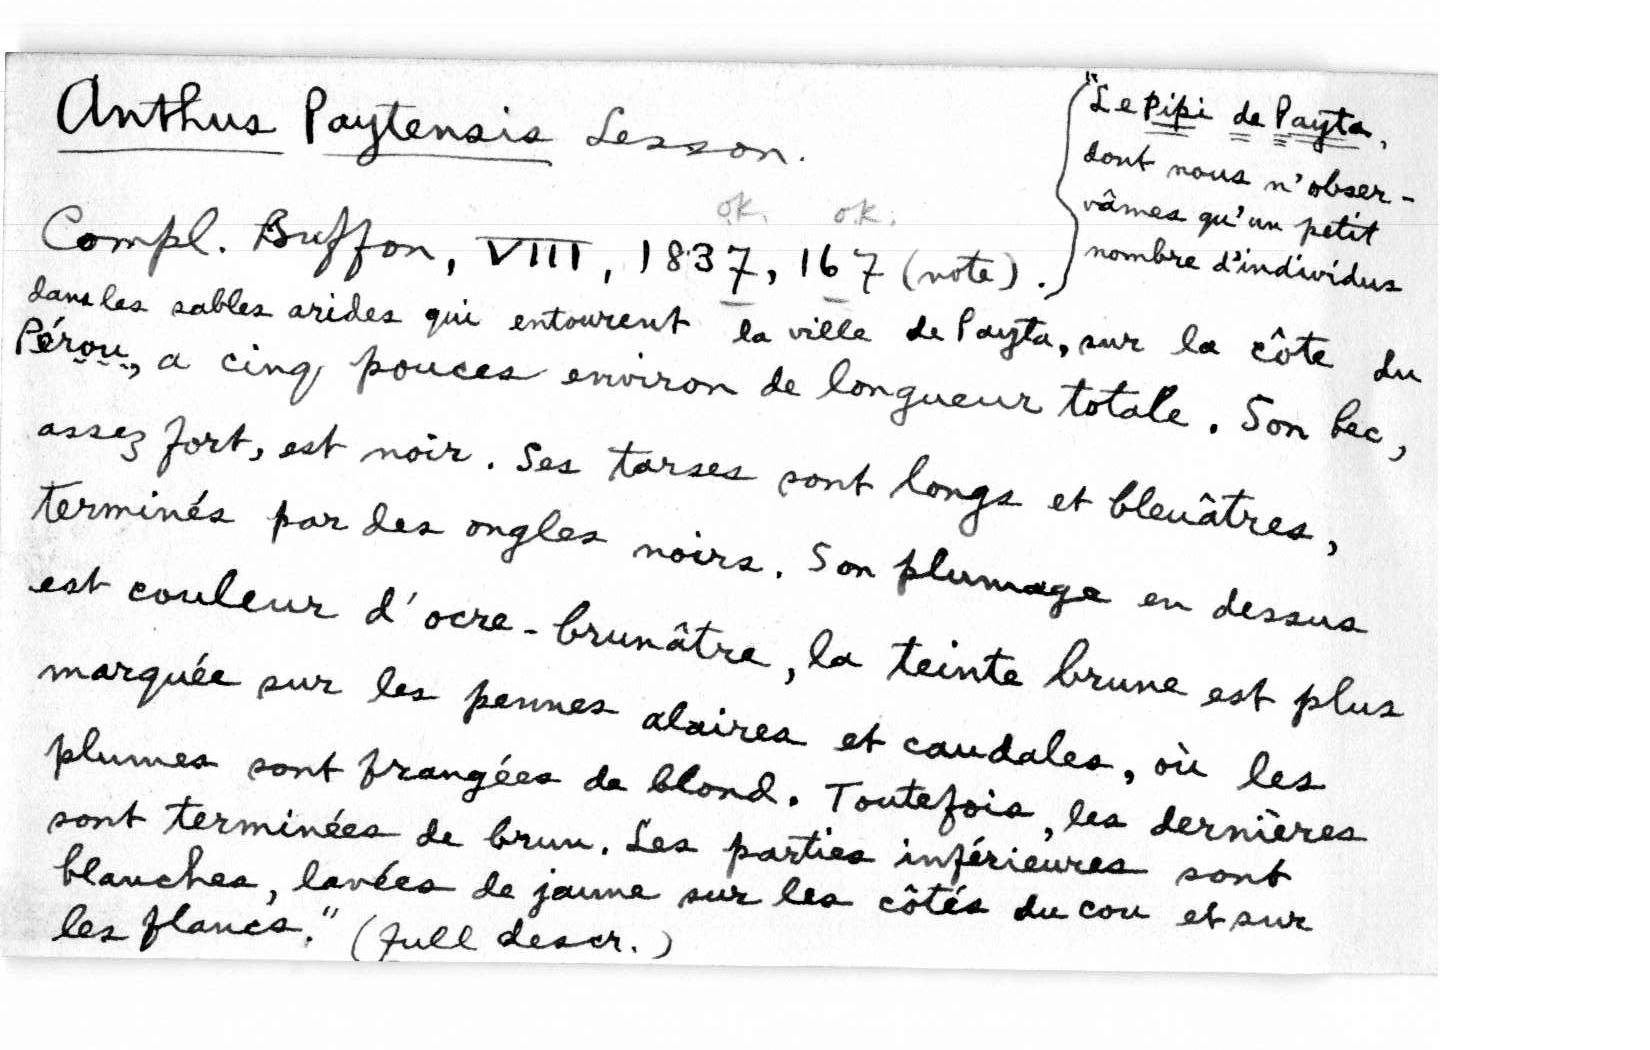 Anthus Paytensis Lesson.
ok. ok.
Compl. Buffon, VIII, 1837, 167 (note).
"Le Pipi de Payta,
dont nous n'obser-
vâmes qu'un petit
nombre d'individus
dans les sables arides qui entourent la ville de Payta, sur la côte du
Pérou, a cinq pouces environ de longueur totale. Son bec,
assez fort, est noir. Ses tarses sont longs et bleuâtres,
terminés par des ongles noirs. Son plumage en dessus
est couleur d'ocre-brunâtre, la teinte brune est plus
marquée sur les pennes alaires et caudales, où les
plumes sont frangées de blond. Toutefois, les dernières
sont terminées de brun. Les parties inférieures sont
blanches, lavées de jaune sur les côtés du cou et sur
les flancs." (full descr.)